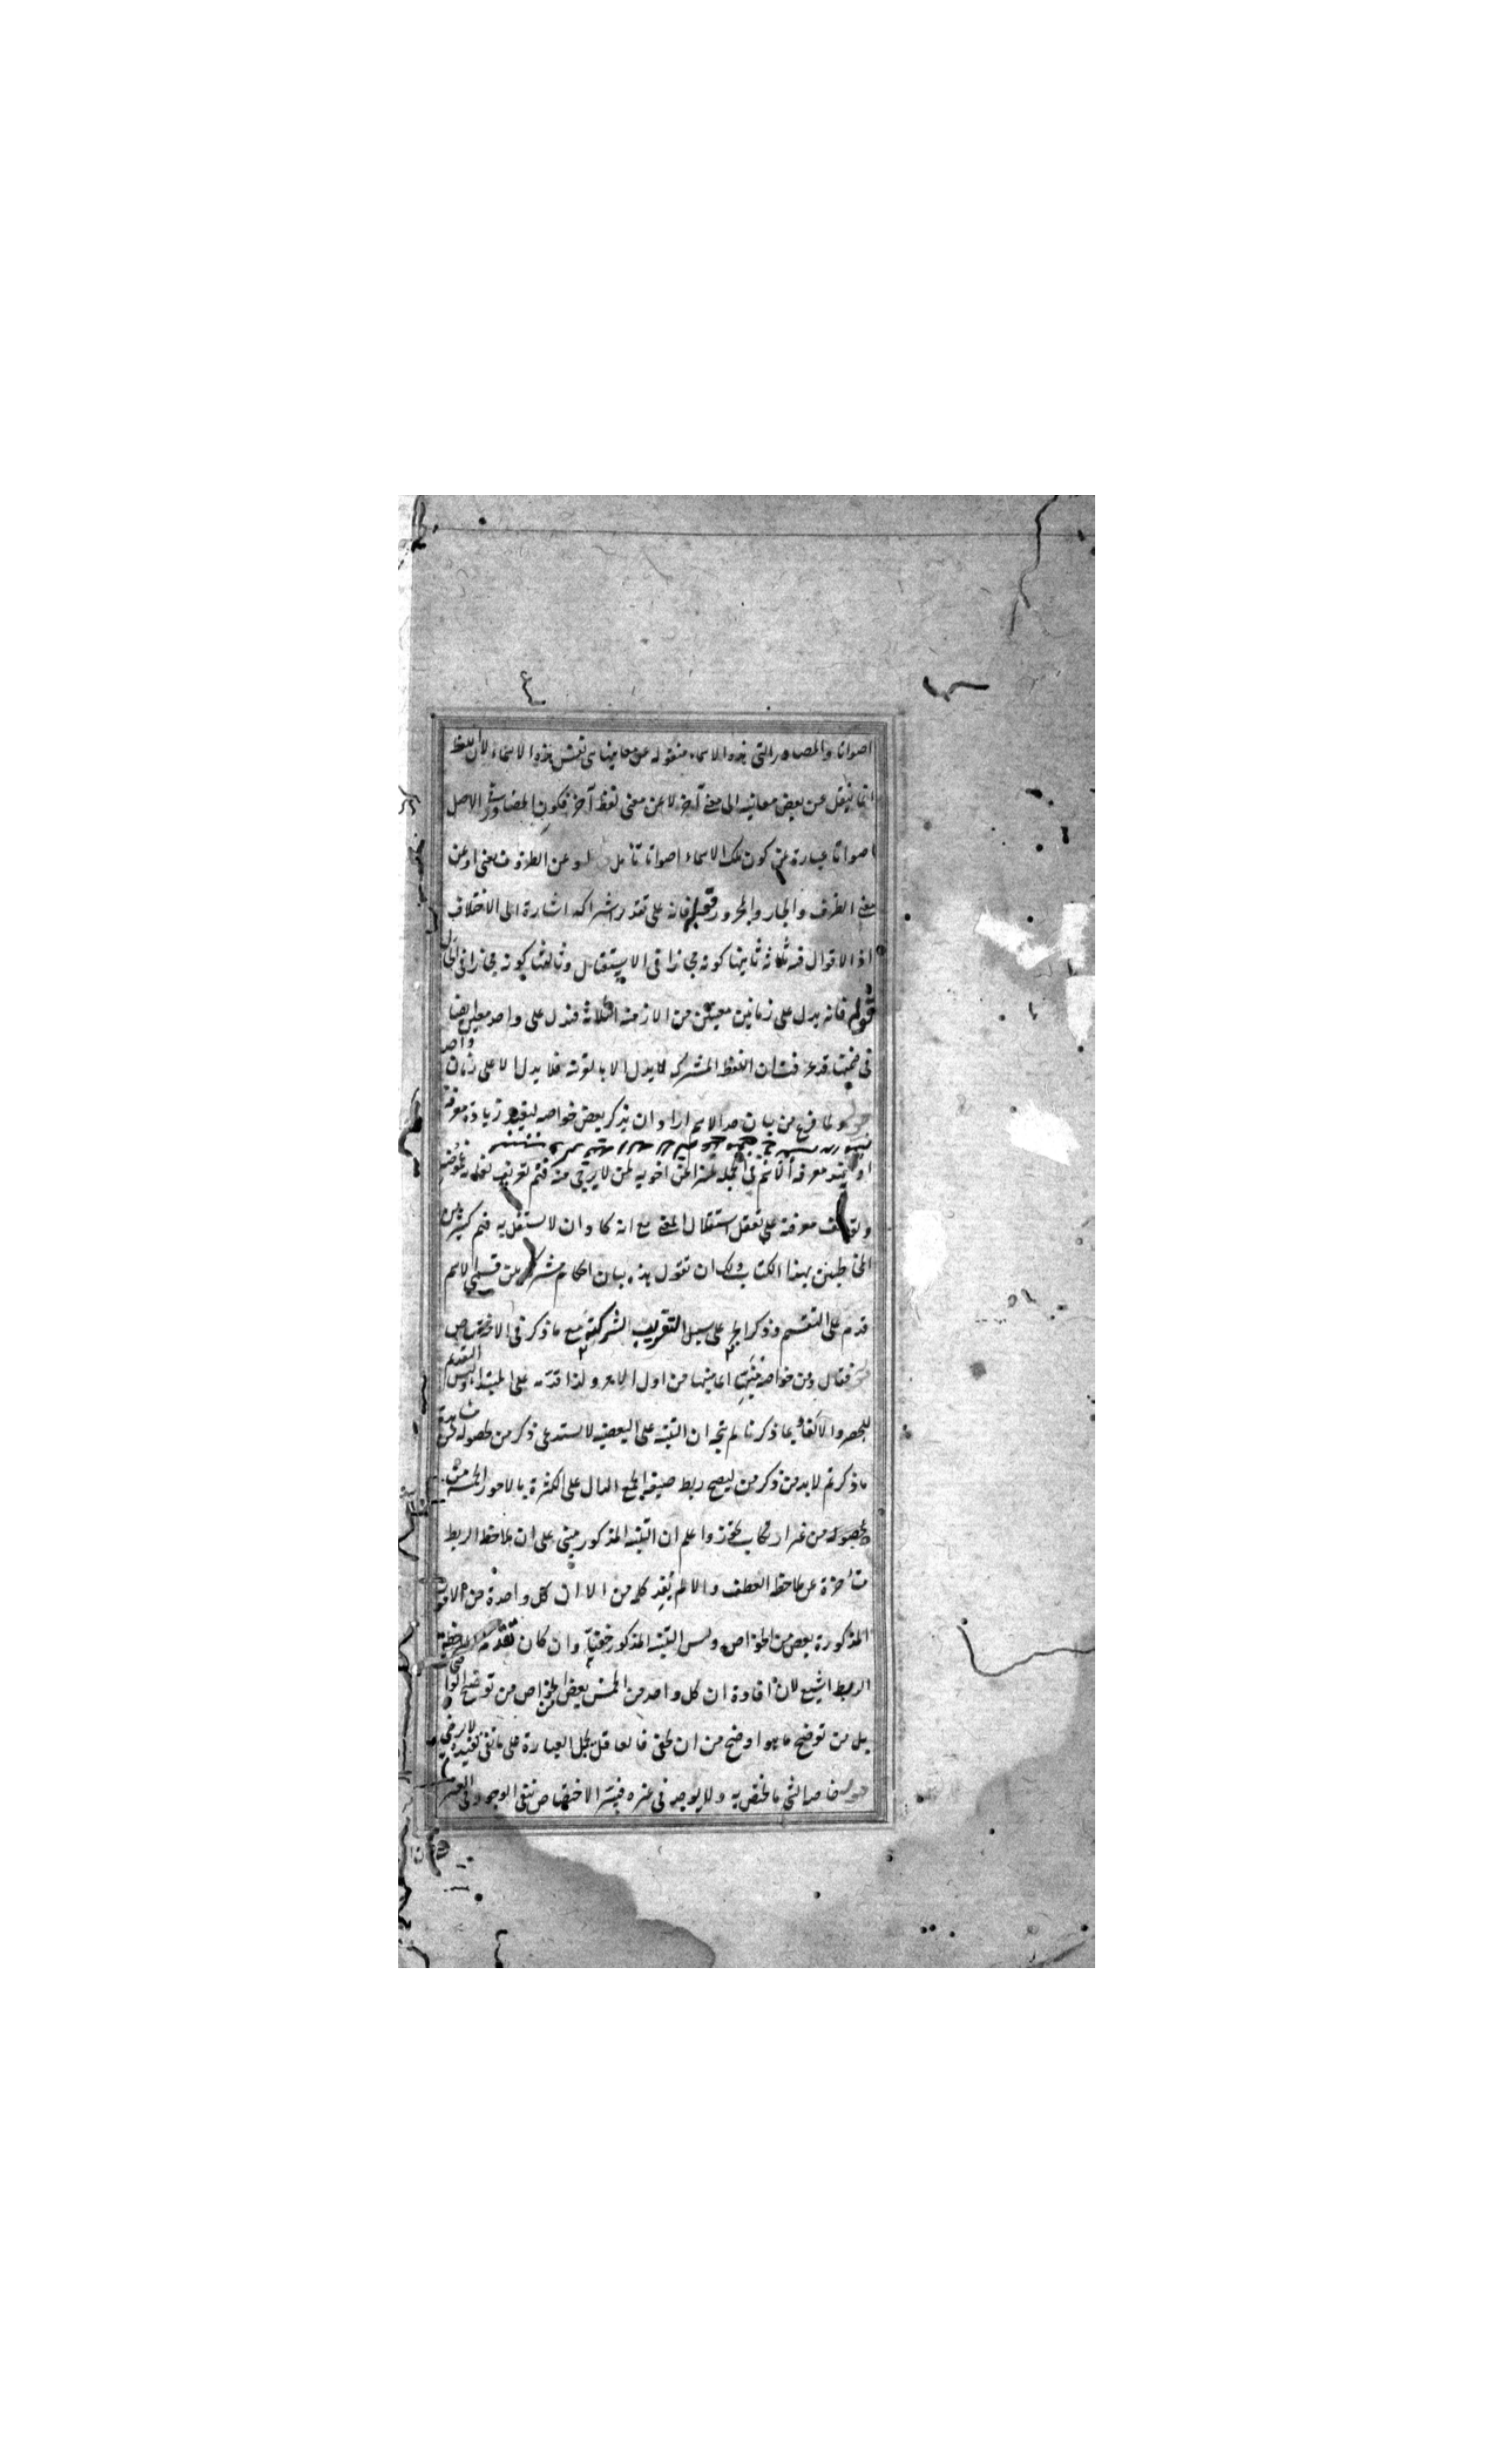 اصواتا والمصادر التى هذه الاسماء منقوله عن معانيها هذه الاسماء لان اللفظ
انما ينقل عن بعض معانيه الى معنى آخر لا عن معنى لفظ آخر فكون المصادر فى الاصل
اصواتا عبارة عن كون تلك الاسماء اصواتا تأمل او عن الظرف يعنى او عن
معنى الظرف والجار والمجرور قوله فانه على تقدير اشتراكه اشارة الى الاختلاف
اذ الاقوال فيه ثلاثة ثانيها كونه مجازا فى الاستقبال وثالثها كونه مجازا فى الحال
قوله فانه يدل على زمانين معينين من الازمنة الثلاثة فيدل على واحد معين ايضا
فى ضمنهما قد عرفت ان اللفظ المشترك لا يدل الا فلا يدل الا على زمان واحد
قوله ولما فرغ من بيان حد الاسم اراد ان يذكر بعض خواصه ليفيد زيادة معرفة
او معرفة الاسم فى الجملة اخويه لمن
معرفته على تعقل استقلال المعنى مع انه كاد ان لا يستقل به فهم كثير من
المخاطبين بهذا الكتاب ولك ان تقول هذه بيان احكام مشتركة بين قسمى الاسم
قدم على التقسيم وذكر على سبيل التقريب مع ما ذكر فى الاختصاص
فقال ومن خواصه منبها من اول الامر ولذا قدمه على المبتدأ وليس التقديم
للحصر والاكتفاء بما ذكرنا لم يتجه ان التنبيه على البعضية لا يستدعى ذكر من لحصوله من
ما ذكر ثم لا بد من ذكر من ليصح ربط صيغة الجمع الدال على الكثرة بالامور الخمسة
لحصوله من غير ارتكاب تجوز واعلم ان التنبيه المذكور مبنى على ان ملاحظة الربط
متأخرة عن ملاحظة العطف والا لم يفد كلمة من الا ان كل واحدة من الامور
المذكورة بعض من الخواص وليس التنبيه المذكور خفيا وان كان تقدم ملاحظة
الربط اشيع لان افادة ان كل واحد من الخمس بعض الخواص من توضيح الواضح
بل من توضيح ما هو اوضح من ان يخفى فالعاقل يحمل العبارة على ما
قوله خاصة الشئ ما يختص به ولا يوجد فى غيره فسر الاختصاص بنفى الوجود فى الغير